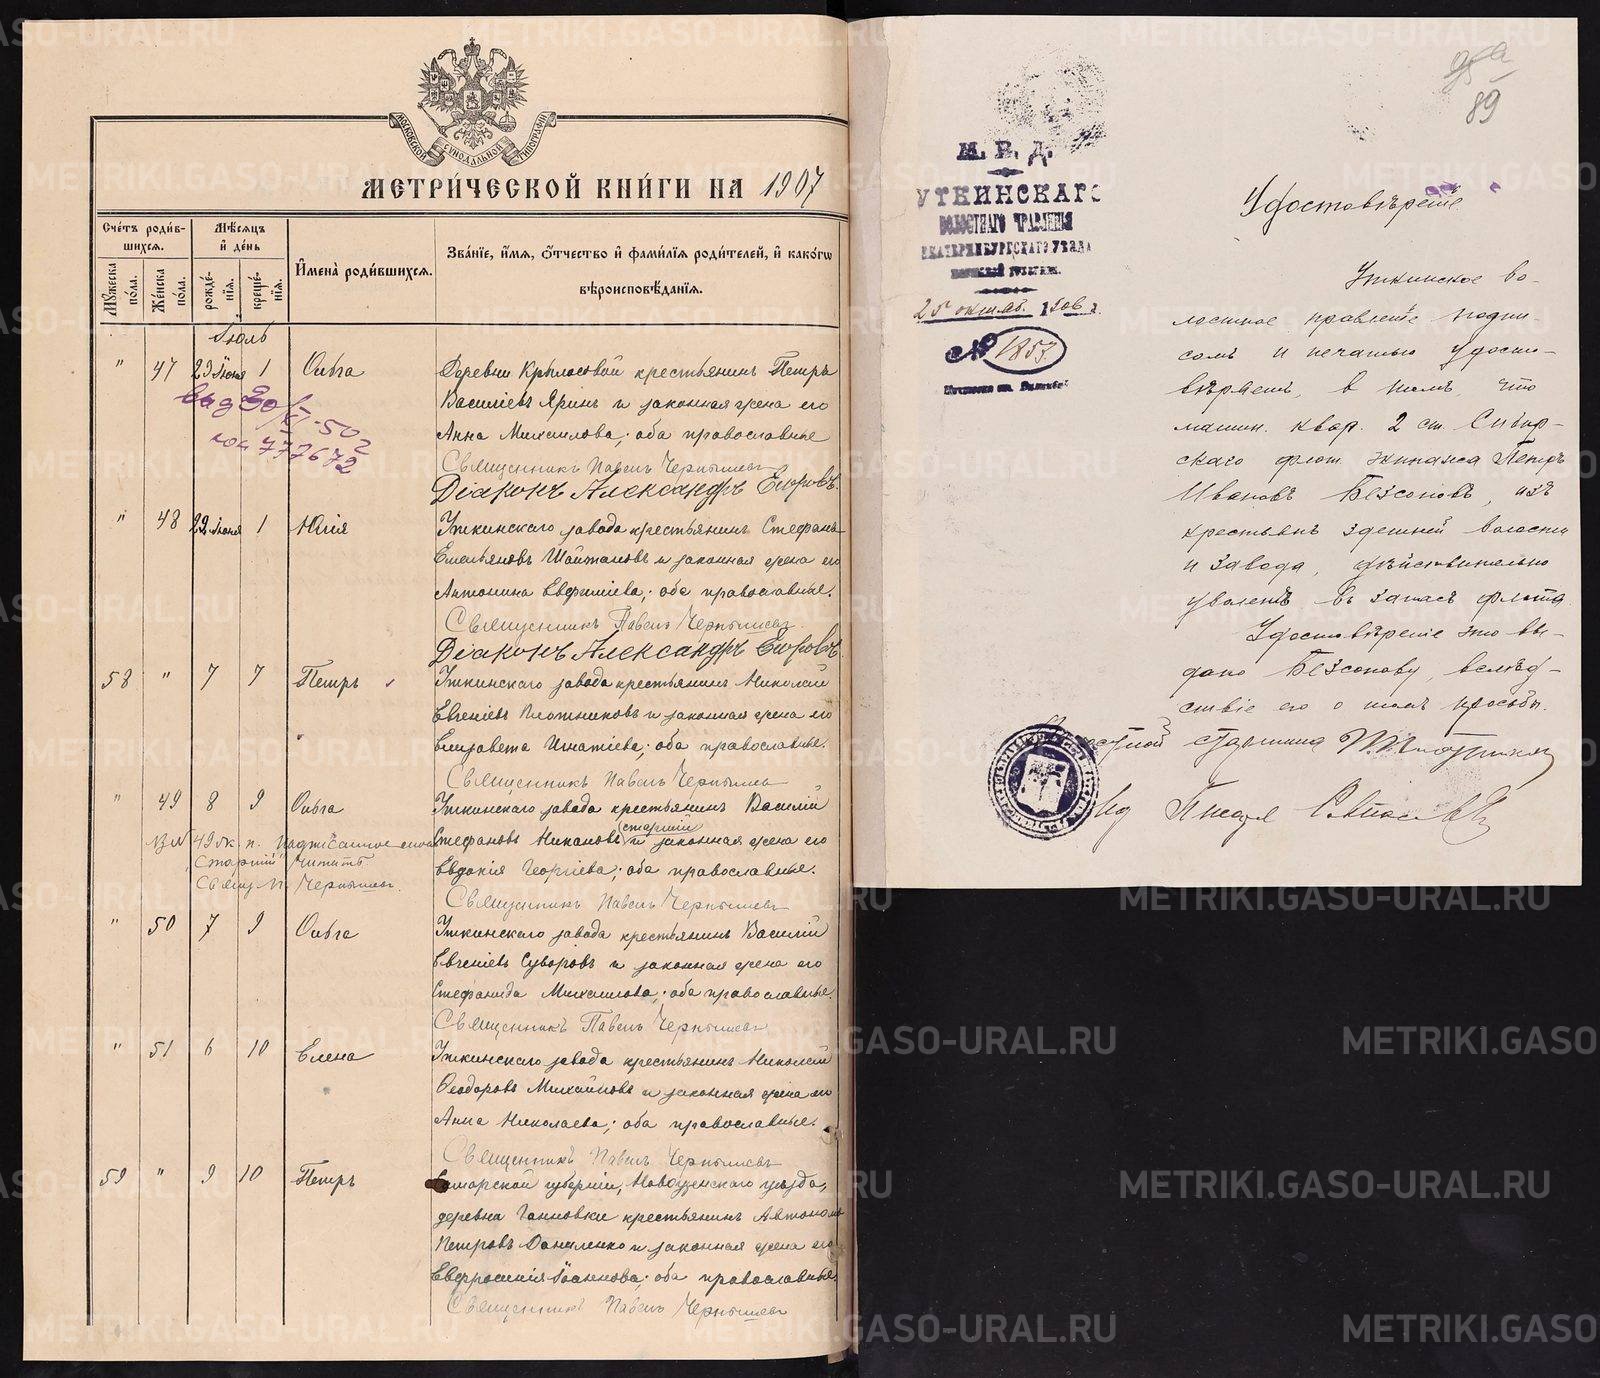 МОСКОВСКОЙ СѴНОДАЛЬНОЙ ТИПОГРАФІИ
МЕТРИ́ЧЕСКОЙ КНИ́ГИ НА 1907
Сче́тъ роди́в-
шихся.
Мѣ́сяцъ
и҆ де́нь
И҆мена̀ роди́вшихся.
Зва́нїе, и҆́мя, ѻ҆́тчество и҆ фами́лїя роди́телей, и҆ како́гѡ
вѣроисповѣ́данїя.
Мꙋ́жеска по́ла.
Же́нска по́ла.
рожде́-нїя.
креще́-нїя.
Іюль
" 47 23 Іюня 1 Ольга Деревни Крыласовой крестьянинъ Петръ
Василіевъ Яринъ и законная жена его
Анна Михаилова; оба православные
Священникъ Павелъ Чернышевъ
Діаконъ Александръ Егоровъ.
выд 30/VI-50 г
777672
" 48 22 Іюня 1 Юлія Уткинскаго завода крестьянинъ Стефанъ
Емельяновъ Шайтановъ и законная жена его
Антонина Евфиміева; оба православные.
Священникъ Павелъ Чернышевъ.
Діаконъ Александръ Егоровъ.
58 " 7 7 Петръ Уткинскаго завода крестьянинъ Николай
Евгеніевъ Плотниковъ и законная жена его
Елизавета Игнатіева; оба православные.
Священникъ Павелъ Чернышевъ
" 49 8 9 Ольга Уткинскаго завода крестьянинъ Василій
Стефановъ Никановъ (старшій) и законная жена его
Евдокія Георгіева; оба православные.
Священникъ Павелъ Чернышевъ
49 ж. п. надписанное слово
"старшій" читать.
Свящ. П. Чернышевъ.
" 50 7 9 Ольга Уткинскаго завода крестьянинъ Василій
Евгеніевъ Суворовъ и законная жена его
Стефанида Михаилова; оба православные.
Священникъ Павелъ Чернышевъ
" 51 6 10 Елена Уткинскаго завода крестьянинъ Николай
Ѳеодоровъ Михайловъ и законная жена его
Анна Николаева; оба православные.
Священникъ Павелъ Чернышевъ
59 " 9 10 Петръ Самарской губерніи, Новоузенскаго уѣзда,
деревни Ганновки крестьянинъ Автономъ
Петровъ Даниленко и законная жена его
Евфросинія Іоаннова; оба православные.
Священникъ Павелъ Чернышевъ
89
М. В. Д.
УТКИНСКАГО
ВОЛОСТНАГО ПРАВЛЕНІЯ
ЕКАТЕРИНБУРГСКАГО УѢЗДА
ПЕРМСКОЙ ГУБЕРНІИ.
25 октяб. 1906 г.
№ 1857
Удостовѣреніе
Уткинское во-
лостное правленіе подпи
сомъ и печатью удосто-
вѣряетъ, в томъ, что
машин. квар. 2 ст. Сибир-
скаго флот. экипажа Петръ
Ивановъ Безсоновъ, изъ
крестьянъ здешней волости
и завода, дѣйствительно
уволенъ въ запасъ флота
Удостовѣреніе это вы-
дано Безсонову, вслѣд-
ствіе его о томъ просьбы.
Волостной старшина
Писарь
METRIKI.GASO-URAL.RU